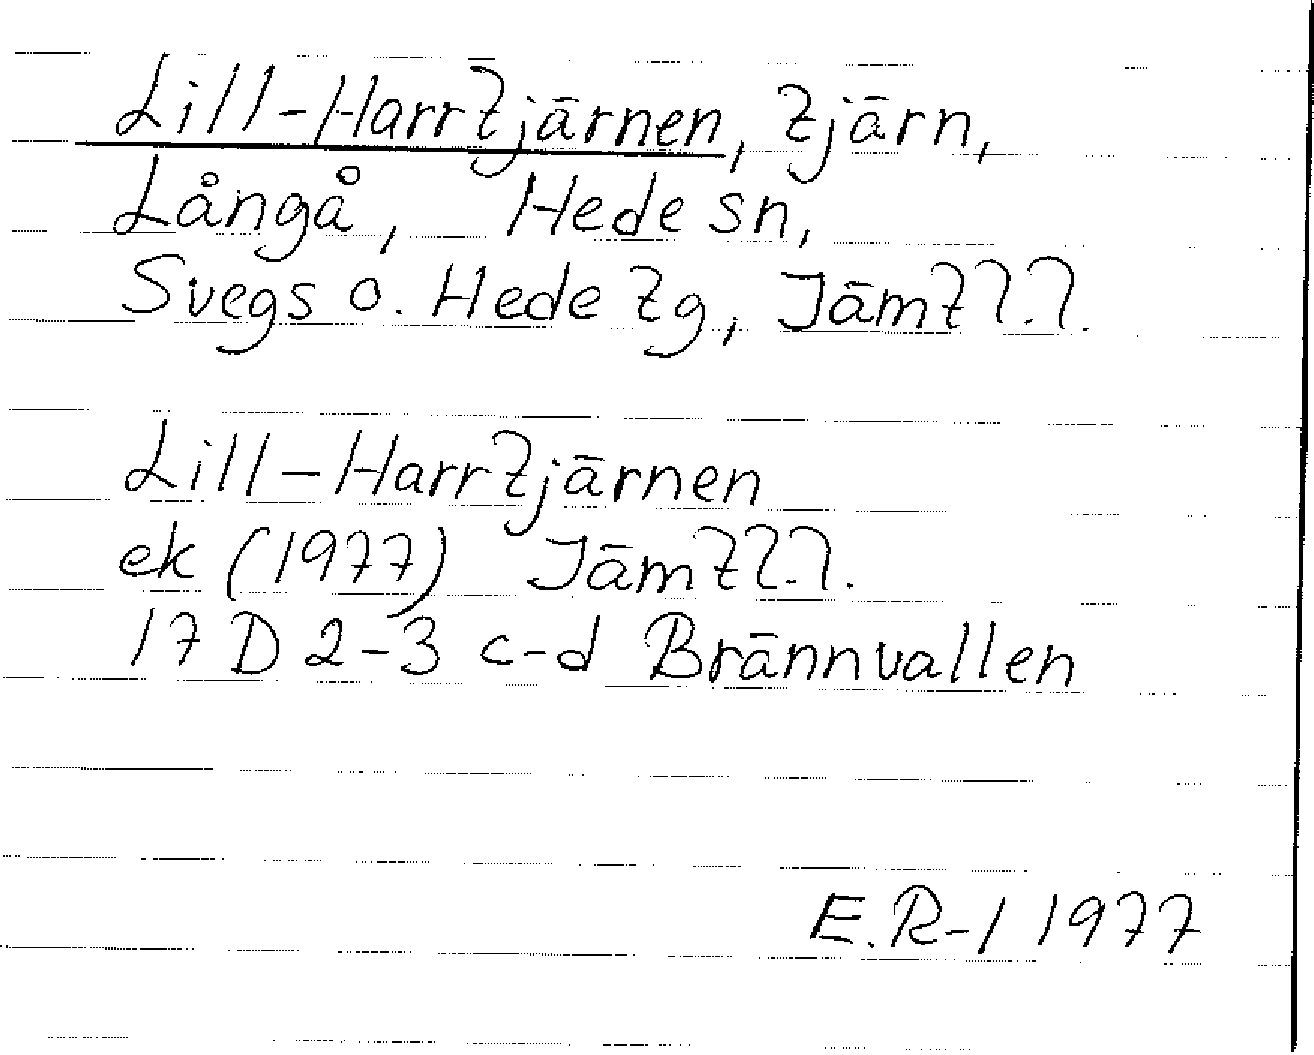 Lill-Harrtjärnen, tjärn,
Långå, Hede sn,
Svegs o. Hede tg, Jämtl.l.
Lill-Harrtjärnen
ek (1977) Jämtl.l.
17 D 2-3 c-d Brännvallen
E.R-l 1977